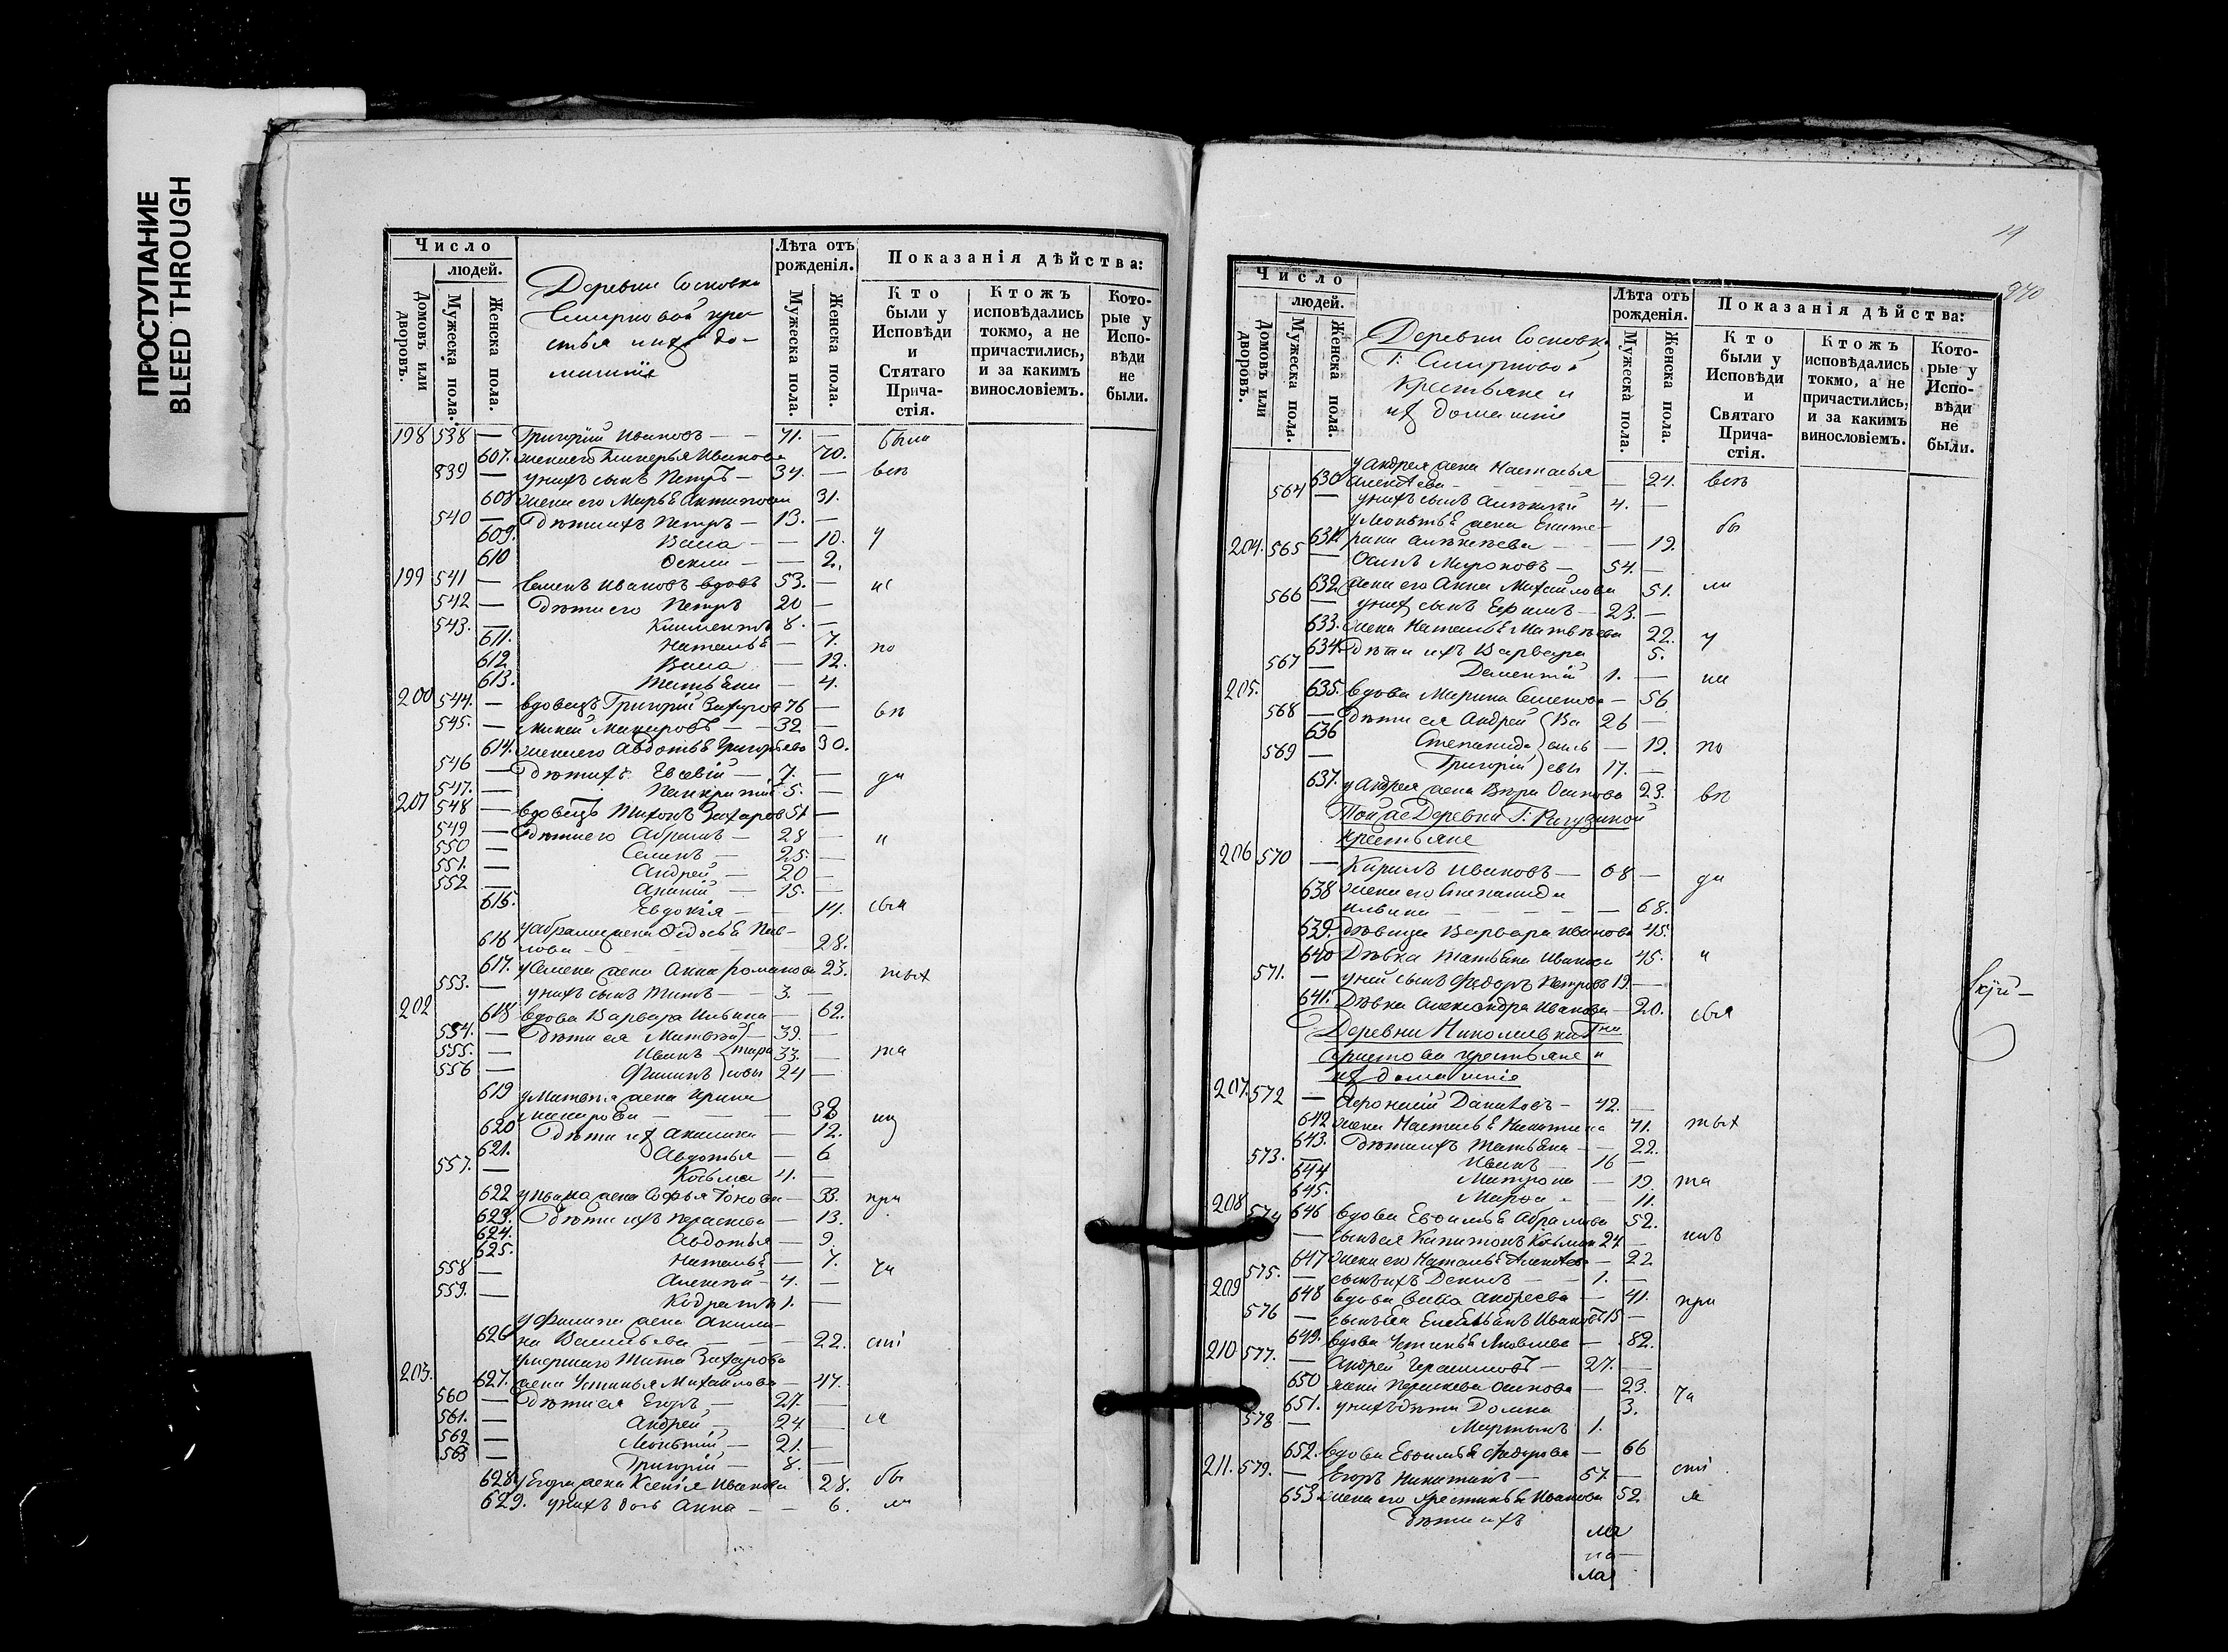 ПРОСТУПАНИЕ
BLEED THROUGH
Число
людей.
Домовъ или дворовъ.
Мужеска пола.
Женска пола.
Деревни Сосновки
Смирновой кре
стья и ихъ до-
машнія
Лѣта отъ рожденія.
Мужеска пола.
Женска пола.
Показанія дѣйства:
Кто были у Исповѣди и Стятаго Прича- стія.
Ктожъ исповѣдались токмо, а не причастились, и за какимъ винословіемъ.
Кото- рые у Испо- вѣди не были.
198 538 — Григорій Ивановъ — 71. — были
607. жена его Ивановa 70.
839 — у нихъ сынъ Петръ — 34. — всѣ
608 жена его Марья 31.
540 — дѣти ихъ Петръ — 13. —
609. Васса — — 10. у
610 — — 2.
199 541 — Семенъ Ивановъ вдовъ 53. — ис
542 — дѣти его Петръ 20 —
543. — Климентъ 8. —
611. Наталья — 7. по
612 Васса — 12.
613. Татьяна — 4.
200 544. — вдовецъ Григорій Захаров 76 — вѣ
545. — Макаровъ — 32 —
614. жена его Авдотья Григорьева 30.
546 — дѣти ихъ Евсевій — 7. — ди
547. — Панкратій 5. —
201 548 — вдовецъ Тихонъ Захаров 51 —
549 — дѣти его Абрамъ — 28 — и
550 — Семенъ — 25. —
551. — Андрей — 20 —
552 — Ананій — 15. —
615. Евдокія — — 14. свя
616 у Абрама жена Федосья Пав-
лова — — 28.
617. у Семена жена Анна Романова 23. тыхъ
553. — у нихъ сынъ Титъ — 3. —
202 618 вдова Варвара Ильина — 62.
554. — дѣти ея Матвѣй — 39. —
555. — Иванъ 33. — та
556 — Филипъ 24 —
619 у Матвѣя жена Ирина
Макарова — — 32 ин
620 дѣти ихъ Акилина — 12.
621. Авдотья — 6
557. — Косьма 4. —
622 у Ивана жена Софья — 33. при
623. дѣти ихъ Параскева — 13.
624. Авдотья — 9.
625. Наталья — 7.
558 — Алексѣй — 4. — ча
559. — Кодратъ 1. —
у Филипа жена Акили-
626 на Васильева — — 22. сті
умершаго Тита Захарова
203. 627. жена Устинья Михайлова — 47.
560 — дѣти ея Егоръ — 27. —
561. — Андрей — 24 — я
562 — Леонтій — 21. —
563 — Григорій — 8. —
628 у Егора жена Ксенія Иванова 28. бы
629. у нихъ дочь Анна — — 6. ли
19
240
Число
людей.
Домовъ или дворовъ.
Мужеска пола.
Женска пола.
Деревни Сосновки
Г. Смирновой
Крестьяне и
ихъ домашніе
Лѣта отъ рожденія.
Мужеска пола.
Женска пола.
Показанія дѣйства:
Кто были у Исповѣди и Святаго Прича- стія.
Ктожъ исповѣдались токмо, а не причастились, и за какимъ винословіемъ.
Кото- рые у Испо- вѣди не были.
у Андрея жена Настасья
630 Алексѣева — — 24. всѣ
564 — у нихъ сынъ Алексѣй 4. —
у Леонтья жена Екате-
631 рина Алексѣева — — 19. бы
204. 565 — Осипъ Мироновъ — 54. —
632. жена его Анна Михайлова 51. ли
566 — у нихъ сынъ Ефимъ — 23. —
633. жена Наталья Матвѣева 22. у
634. дѣти ихъ Варвара 5.
567 — Дементій 1. — ис
205. 635. вдова Марина Семенова — 56
568 — дѣти ея Андрей (Ва 26 —
636 Степанида силь — 19. по
569 — Григорій евы 17. —
637. у Андрея жена Вѣра Осипова 23. вѣ
Той же Деревни Г. Рагузиной
крестьяне
206 570 — Кирилъ Ивановъ — 68 — ди
638 жена его Степанида
Ильина — — 68.
639. дѣвица Варвара Иванова 45.
640 Дѣвка Татьяна Иванова 45. и
571. — у ней сынъ Федоръ Петровъ 19. —
641. Дѣвка Александра Иванова — 20. свя
Деревни Николаевки Гна
Аристова крестьяне и
ихъ домашніе
207. 572 — Афонасій Даниловъ — 42. —
642 жена Наталья Никитина 41. тыхъ
643. дѣти ихъ Татьяна — 22.
573. — Иванъ — 16 —
644 Матрона — 19. та
645. Марфа — — 11.
208 646 вдова Евфимья Абрамова 52.
574 — сынъ ея Капитонъ Козьмин 24 — инъ
647 жена его Наталья Алексѣева — 22
575. — сынъ ихъ Данилъ — 1. —
209 648 вдова Андреева — 41. при
576 — сынъ ея Емельянъ Ивановъ 15 —
649. вдова Устинья Яковлева — 82.
210 577. — Андрей Герасимовъ — 27. —
650 жена Параскева Осипова — 23. ча
651. у нихъ дѣти Домна 3.
578 — Мартынъ 1.
652. вдова Евфимья Федорова — 66
211. 579. — Егоръ Никитинъ — 57. — сті
653 жена его Иванова 52 я
дѣти ихъ